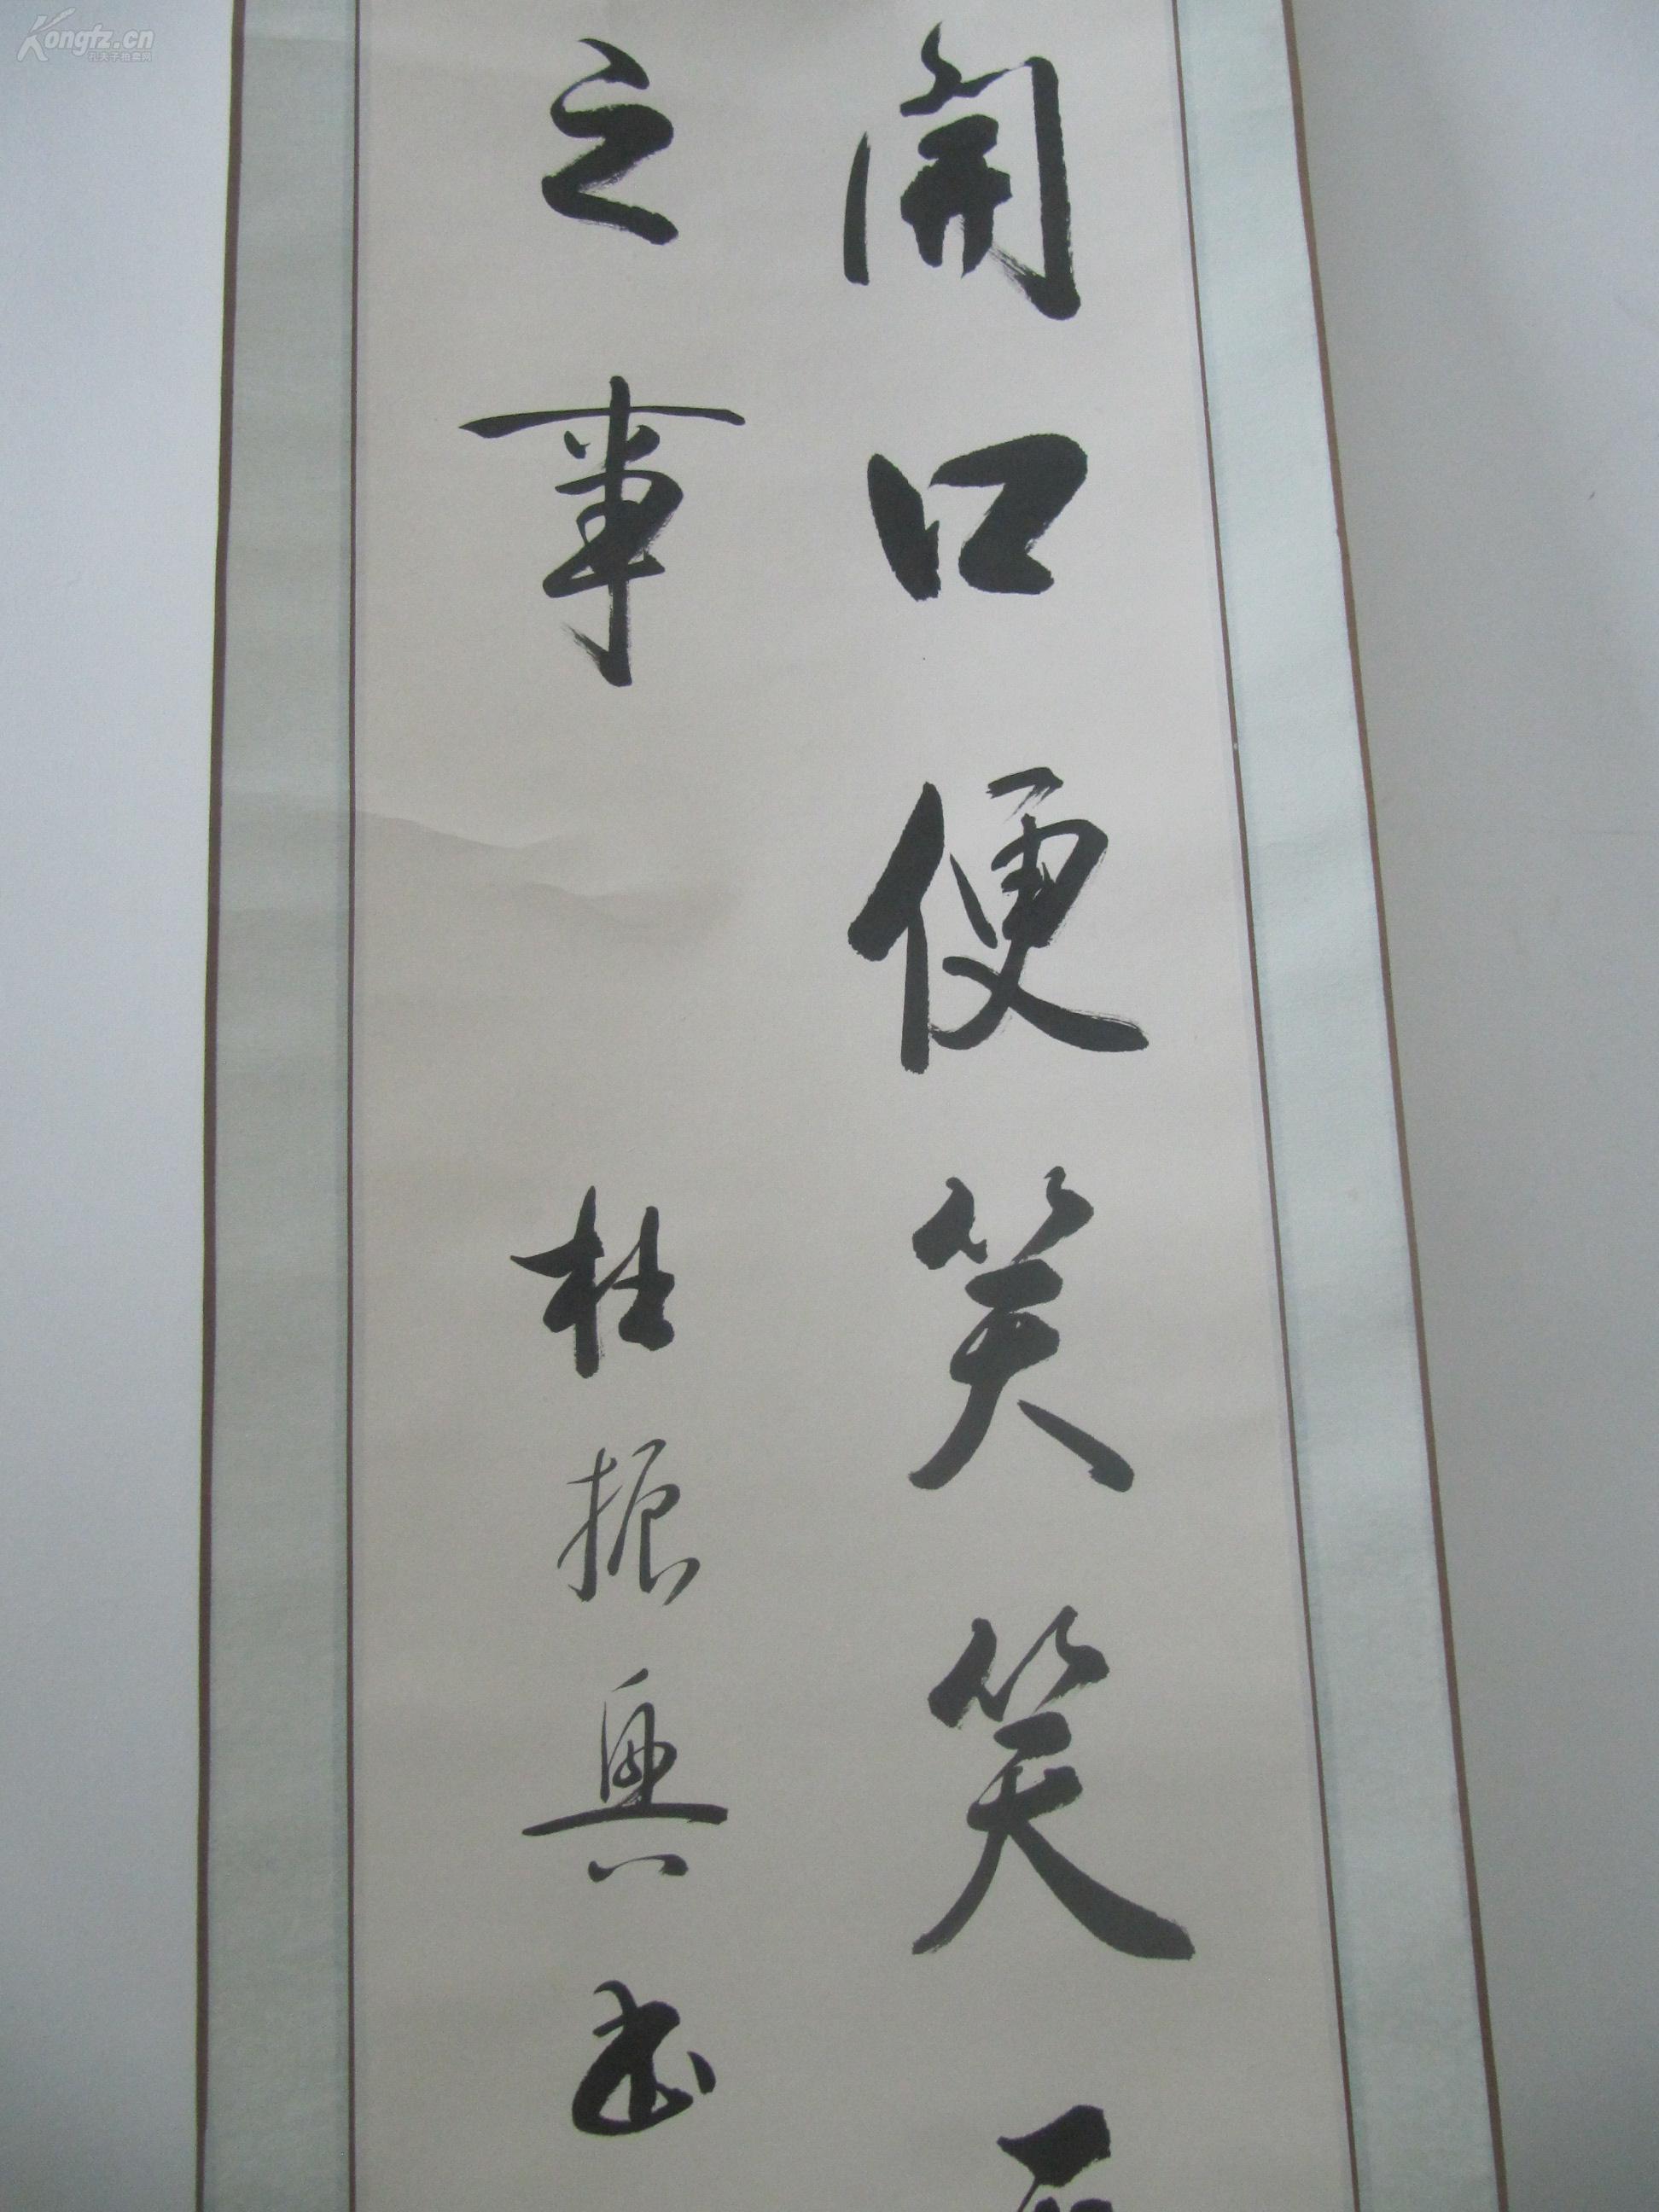 開口便笑笑
之事
杜振興書
Kongfz.cn
孔夫子拍卖网